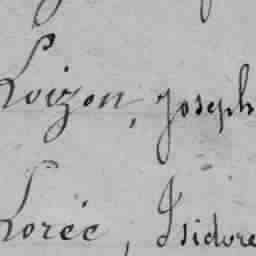 Loizon, Joseph
Lorée, Isidore